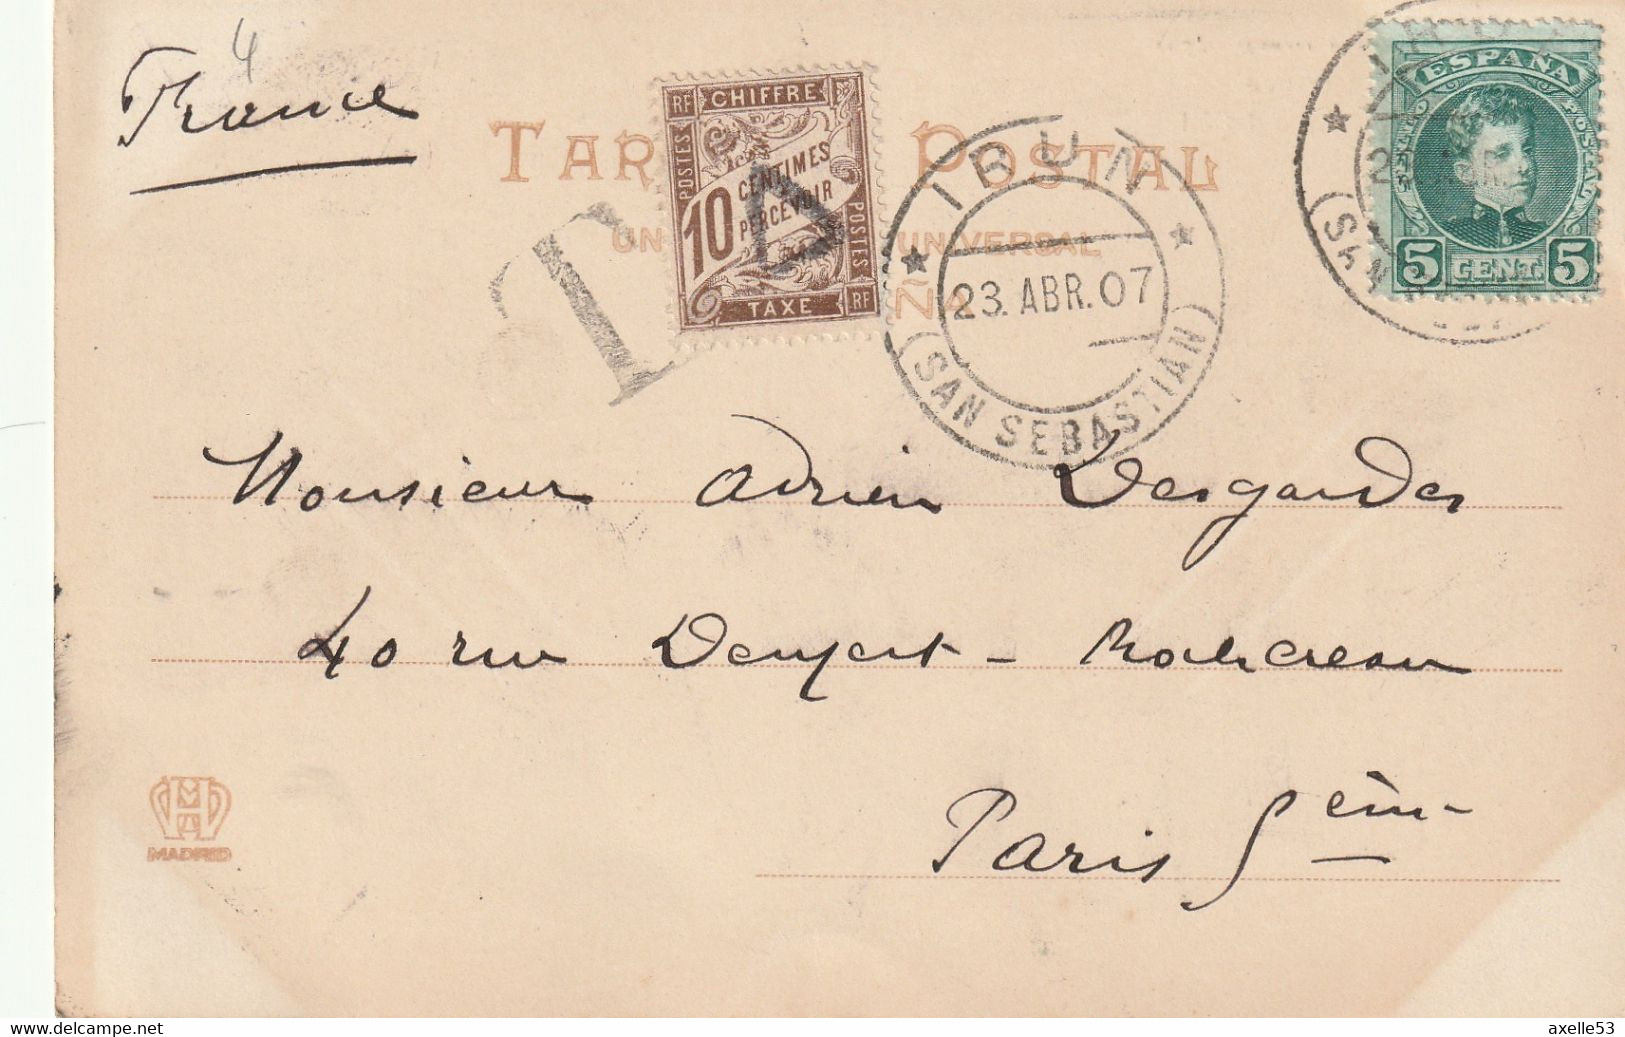 4
France
TARJETA POSTAL
UNIÓN UNIVERSAL
ESPAÑA
T
RF CHIFFRE
POSTES
10 CENTIMES
A PERCEVOIR
POSTES
TAXE RF
IRUN
23. ABR. 07
(SAN SEBASTIAN)
ESPAÑA
5 CENT. 5
Monsieur Adrien Desgardes
40 rue Denfert - Rochereau
Paris 5ème
MADRID
axelle53